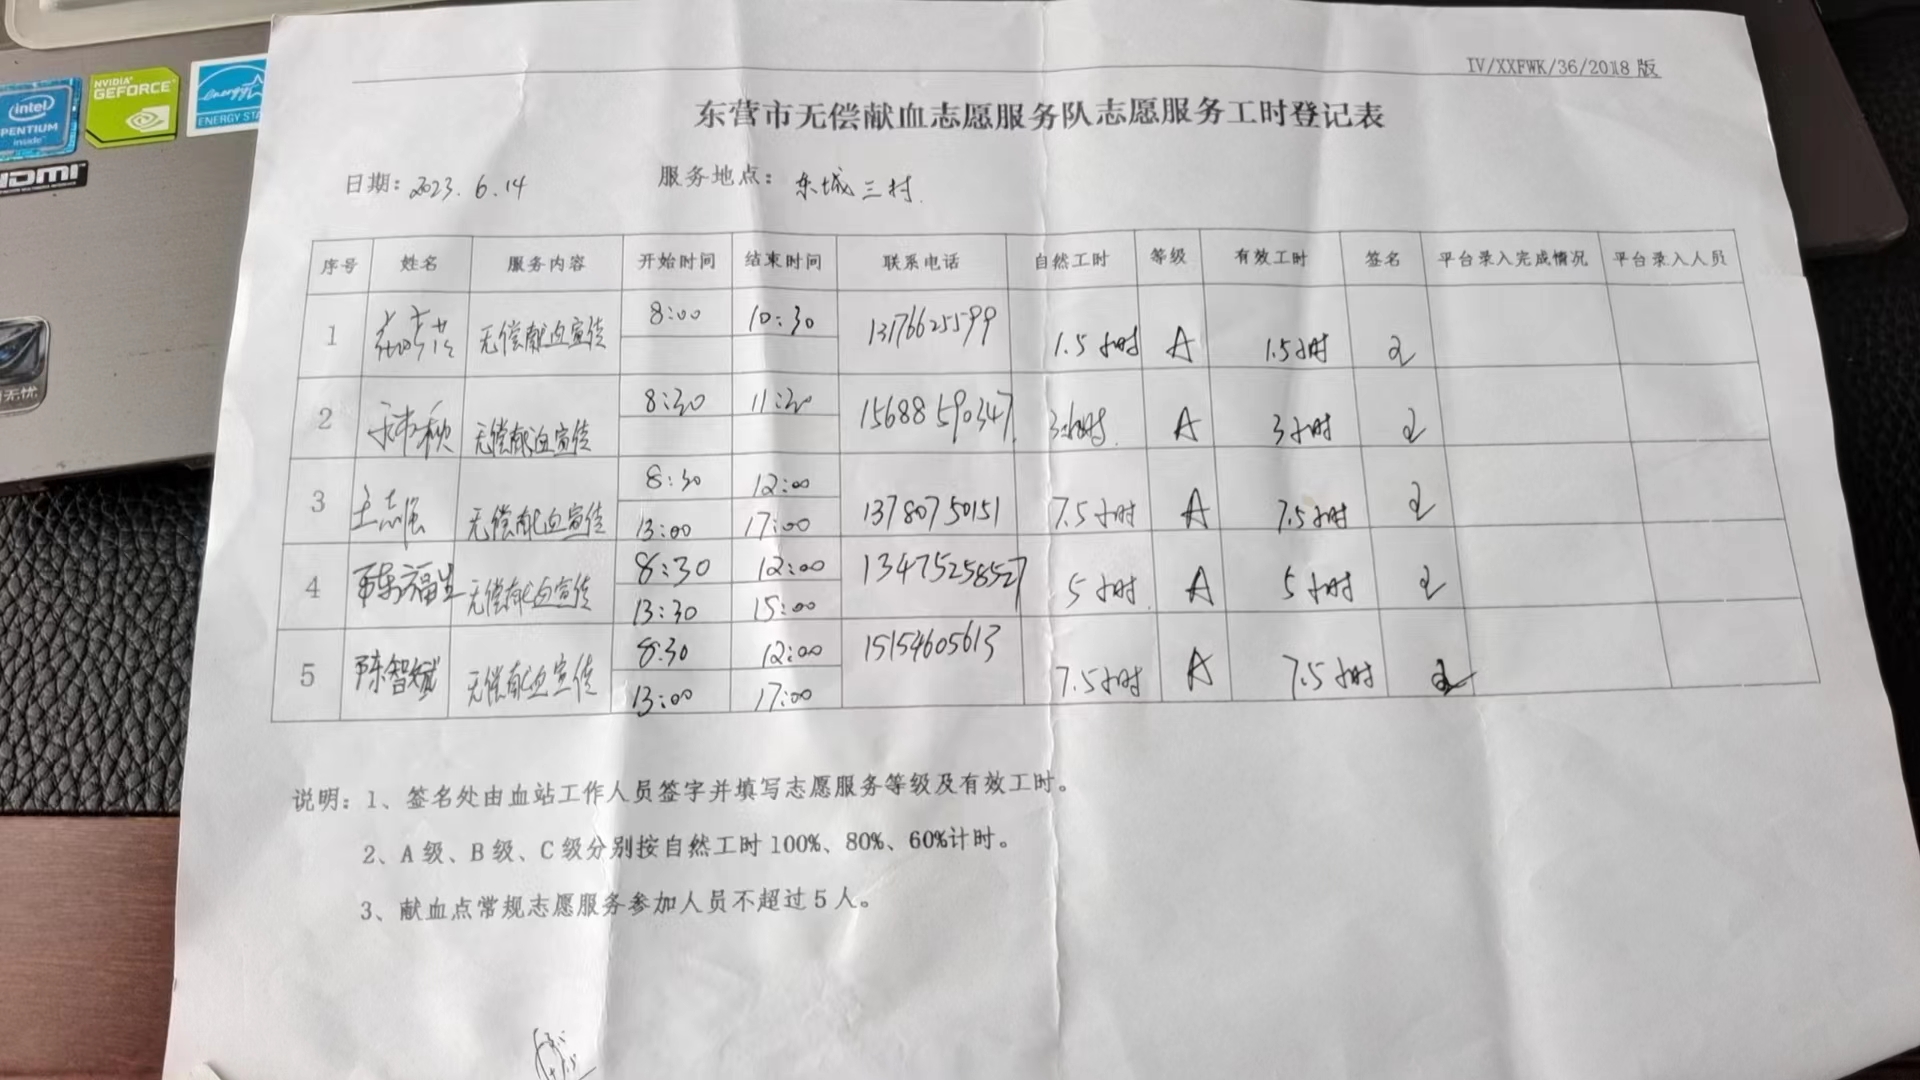 intel
PENTIUM
inside
NVIDIA
GEFORCE
energy
ENERGY STA
HDMI
无忧
IV/XXFWK/36/2018 版
东营市无偿献血志愿服务队志愿服务工时登记表
日期: 2023.6.14 服务地点: 东城三村.
序号 姓名 服务内容 开始时间 结束时间 联系电话 自然工时 等级 有效工时 签名 平台录入完成情况 平台录入人员
1 无偿献血宣传 8:00 10:30 13176625599 1.5小时 A 1.5小时
2 无偿献血宣传 8:30 11:30 15688590347 3小时. A 3小时
3 王志强 无偿献血宣传 8:30 12:00 13780750151 7.5小时 A 7.5小时
13:00 17:00
4 陈福生 无偿献血宣传 8:30 12:00 13475258527 5小时. A 5小时
13:30 15:00
5 陈智斌 无偿献血宣传 8:30 12:00 15154605613 7.5小时 A 7.5小时
13:00 17:00
说明: 1、签名处由血站工作人员签字并填写志愿服务等级及有效工时。
2、A级、B级、C级分别按自然工时100%、80%、60%计时。
3、献血点常规志愿服务参加人员不超过5人。